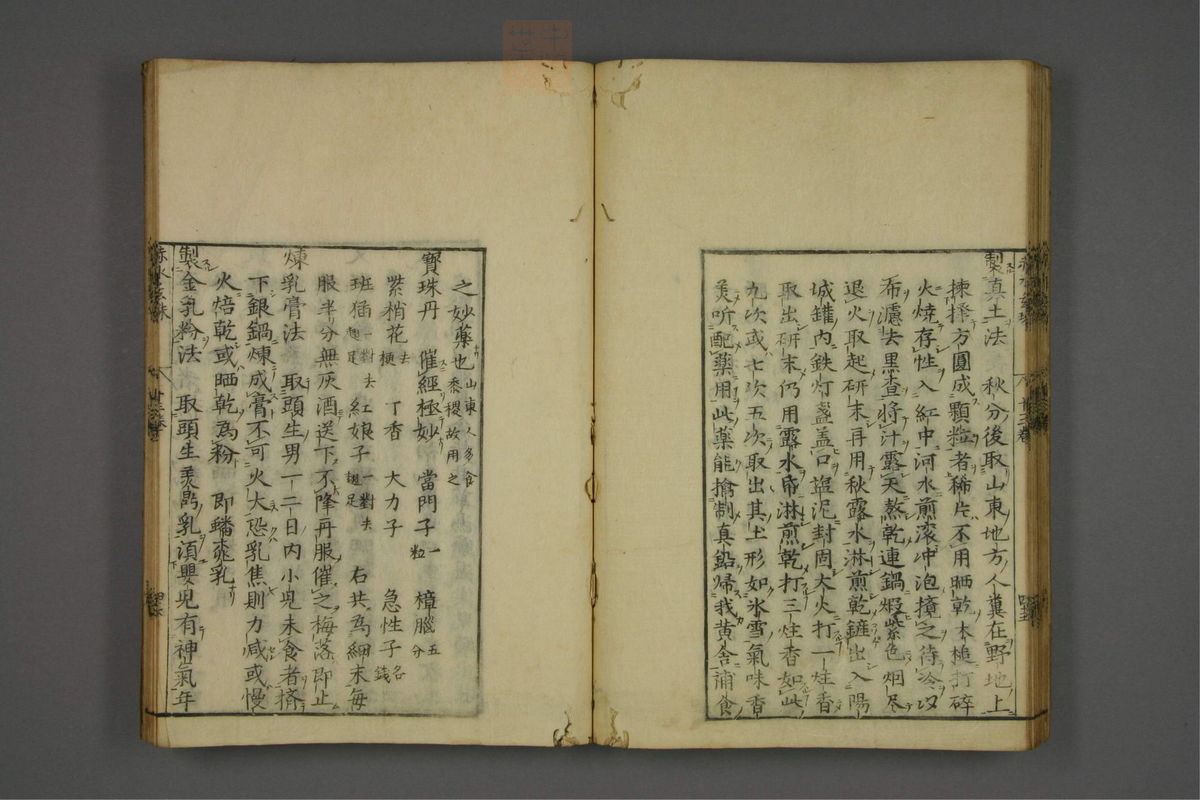 製真土法　秋分後取山東地方人糞在野地上
揀擇方圓成顆粒者稀片不用晒乾木槌打碎
火燒存性入缸中河水煎滚冲泡攪之待冷以
布濾去黒査将汁露天熬乾連鍋煅紫色烟尽
退火取起研末再用秋露水淋煎乾鏟出入陽
城罐内鉄灯盞盖口塩泥封固大火打一炷香
取出研末仍用露水昂淋煎乾打三炷香如此
九次或七次五次取出其土形如氷雪氣味香
美听配藥用此藥能擒制真鉛歸我黄舎補食
之妙藥也山東人多食黍稷故用之
寶珠丹　催經極妙　當門子一粒　樟腦五分
紫梢花去梗　丁香　大力子　急性子各錢
班猫一對去翅足　紅娘子一對去翅足　右共為細末每
服半分無灰酒送下不降再服催之梅落即止
煉乳膏法　取頭生男一二日内小児未食者擠
下銀鍋煉成膏不可火大恐乳焦則力咸或慢
火焙乾或晒乾為粉　即蟠桃乳
製金乳粉法　取頭生美乳須嬰児有神氣年